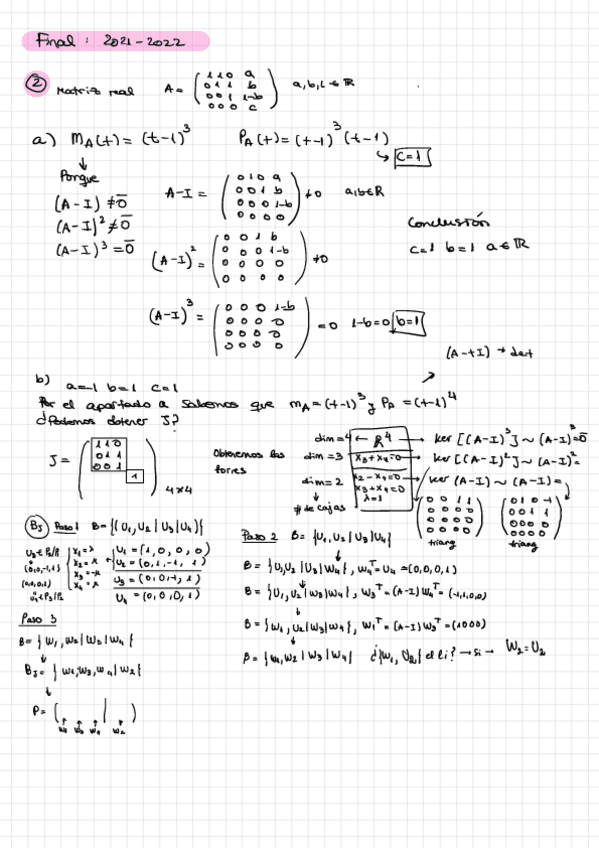 Final : 2021-2022
② Matriz real A = ( 1 1 0 a
0 1 1 b
0 0 1 1-b
0 0 0 c ) a, b, c ∈ ℝ
a) m_A(t) = (t-1)^3 P_A(t) = (t-1)^3 (t-1)
↳ c=1
↓
Porque
(A-I) ≠ 0̄
(A-I)^2 ≠ 0̄
(A-I)^3 = 0̄
A-I = ( 0 1 0 a
0 0 1 b
0 0 0 1-b
0 0 0 0 ) ≠0 a,b∈ℝ
Conclusión
c=1 b=1 a∈ℝ
(A-I)^2 = ( 0 0 1 b
0 0 0 1-b
0 0 0 0
0 0 0 0 ) ≠0
(A-I)^3 = ( 0 0 0 1-b
0 0 0 0
0 0 0 0
0 0 0 0 ) =0 1-b=0 b=1
(A-tI) → det
b) a=-1 b=1 c=1
Por el apartado a sabemos que m_A = (t-1)^3 y P_A = (t-1)^4
¿Podemos obtener J?
J = ( 1 1 0
0 1 1
0 0 1
1 ) 4x4
Obtenemos las
torres
dim=4 ← ℝ^4 → ker [(A-I)^3] ~ (A-I)^3=0̄
dim=3 x3+x4=0 → ker [(A-I)^2] ~ (A-I)^2=
dim=2 x2-x4=0
x3+x4=0
λ=1 → ker (A-I) ~ (A-I) =
↓
# de cajas
( 0 0 1 1
0 0 0 0
0 0 0 0
0 0 0 0 )
triang
( 0 1 0 -1
0 0 1 1
0 0 0 0
0 0 0 0 )
triang
B_J Paso 1 B = {(U1, U2 | U3 | U4)}
x1=λ
U1 = (1, 0, 0, 0)
U2 = (0, 1, -1, 1)
U3 = (0, 0, -1, 1)
U4 = (0, 0, 0, 1)
(0,0,-1,1)
(0,0,0,1)
Paso 2 B = {U1, U2 | U3 | U4}
B = {U1, U2 | U3 | W4}, W4^T = U4 = (0,0,0,1)
B = {U1, U2 | W3 | W4}, W3^T = (A-I) W4^T = (-1,1,0,0)
B = {W1, U2 | W3 | W4}, W1^T = (A-I) W3^T = (1000)
B = {W1, W2 | W3 | W4} ¿{W1, U2} el li? → si → W2=U2
Paso 3
B = { W1, W2 | W3 | W4 }
↓
B_J = { W1, W3, W4 | W2 }
↓
P = ( | )
W1 W3 W4 W2